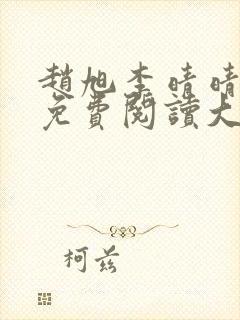 趙旭李晴晴
免費閱讀大
柯茲